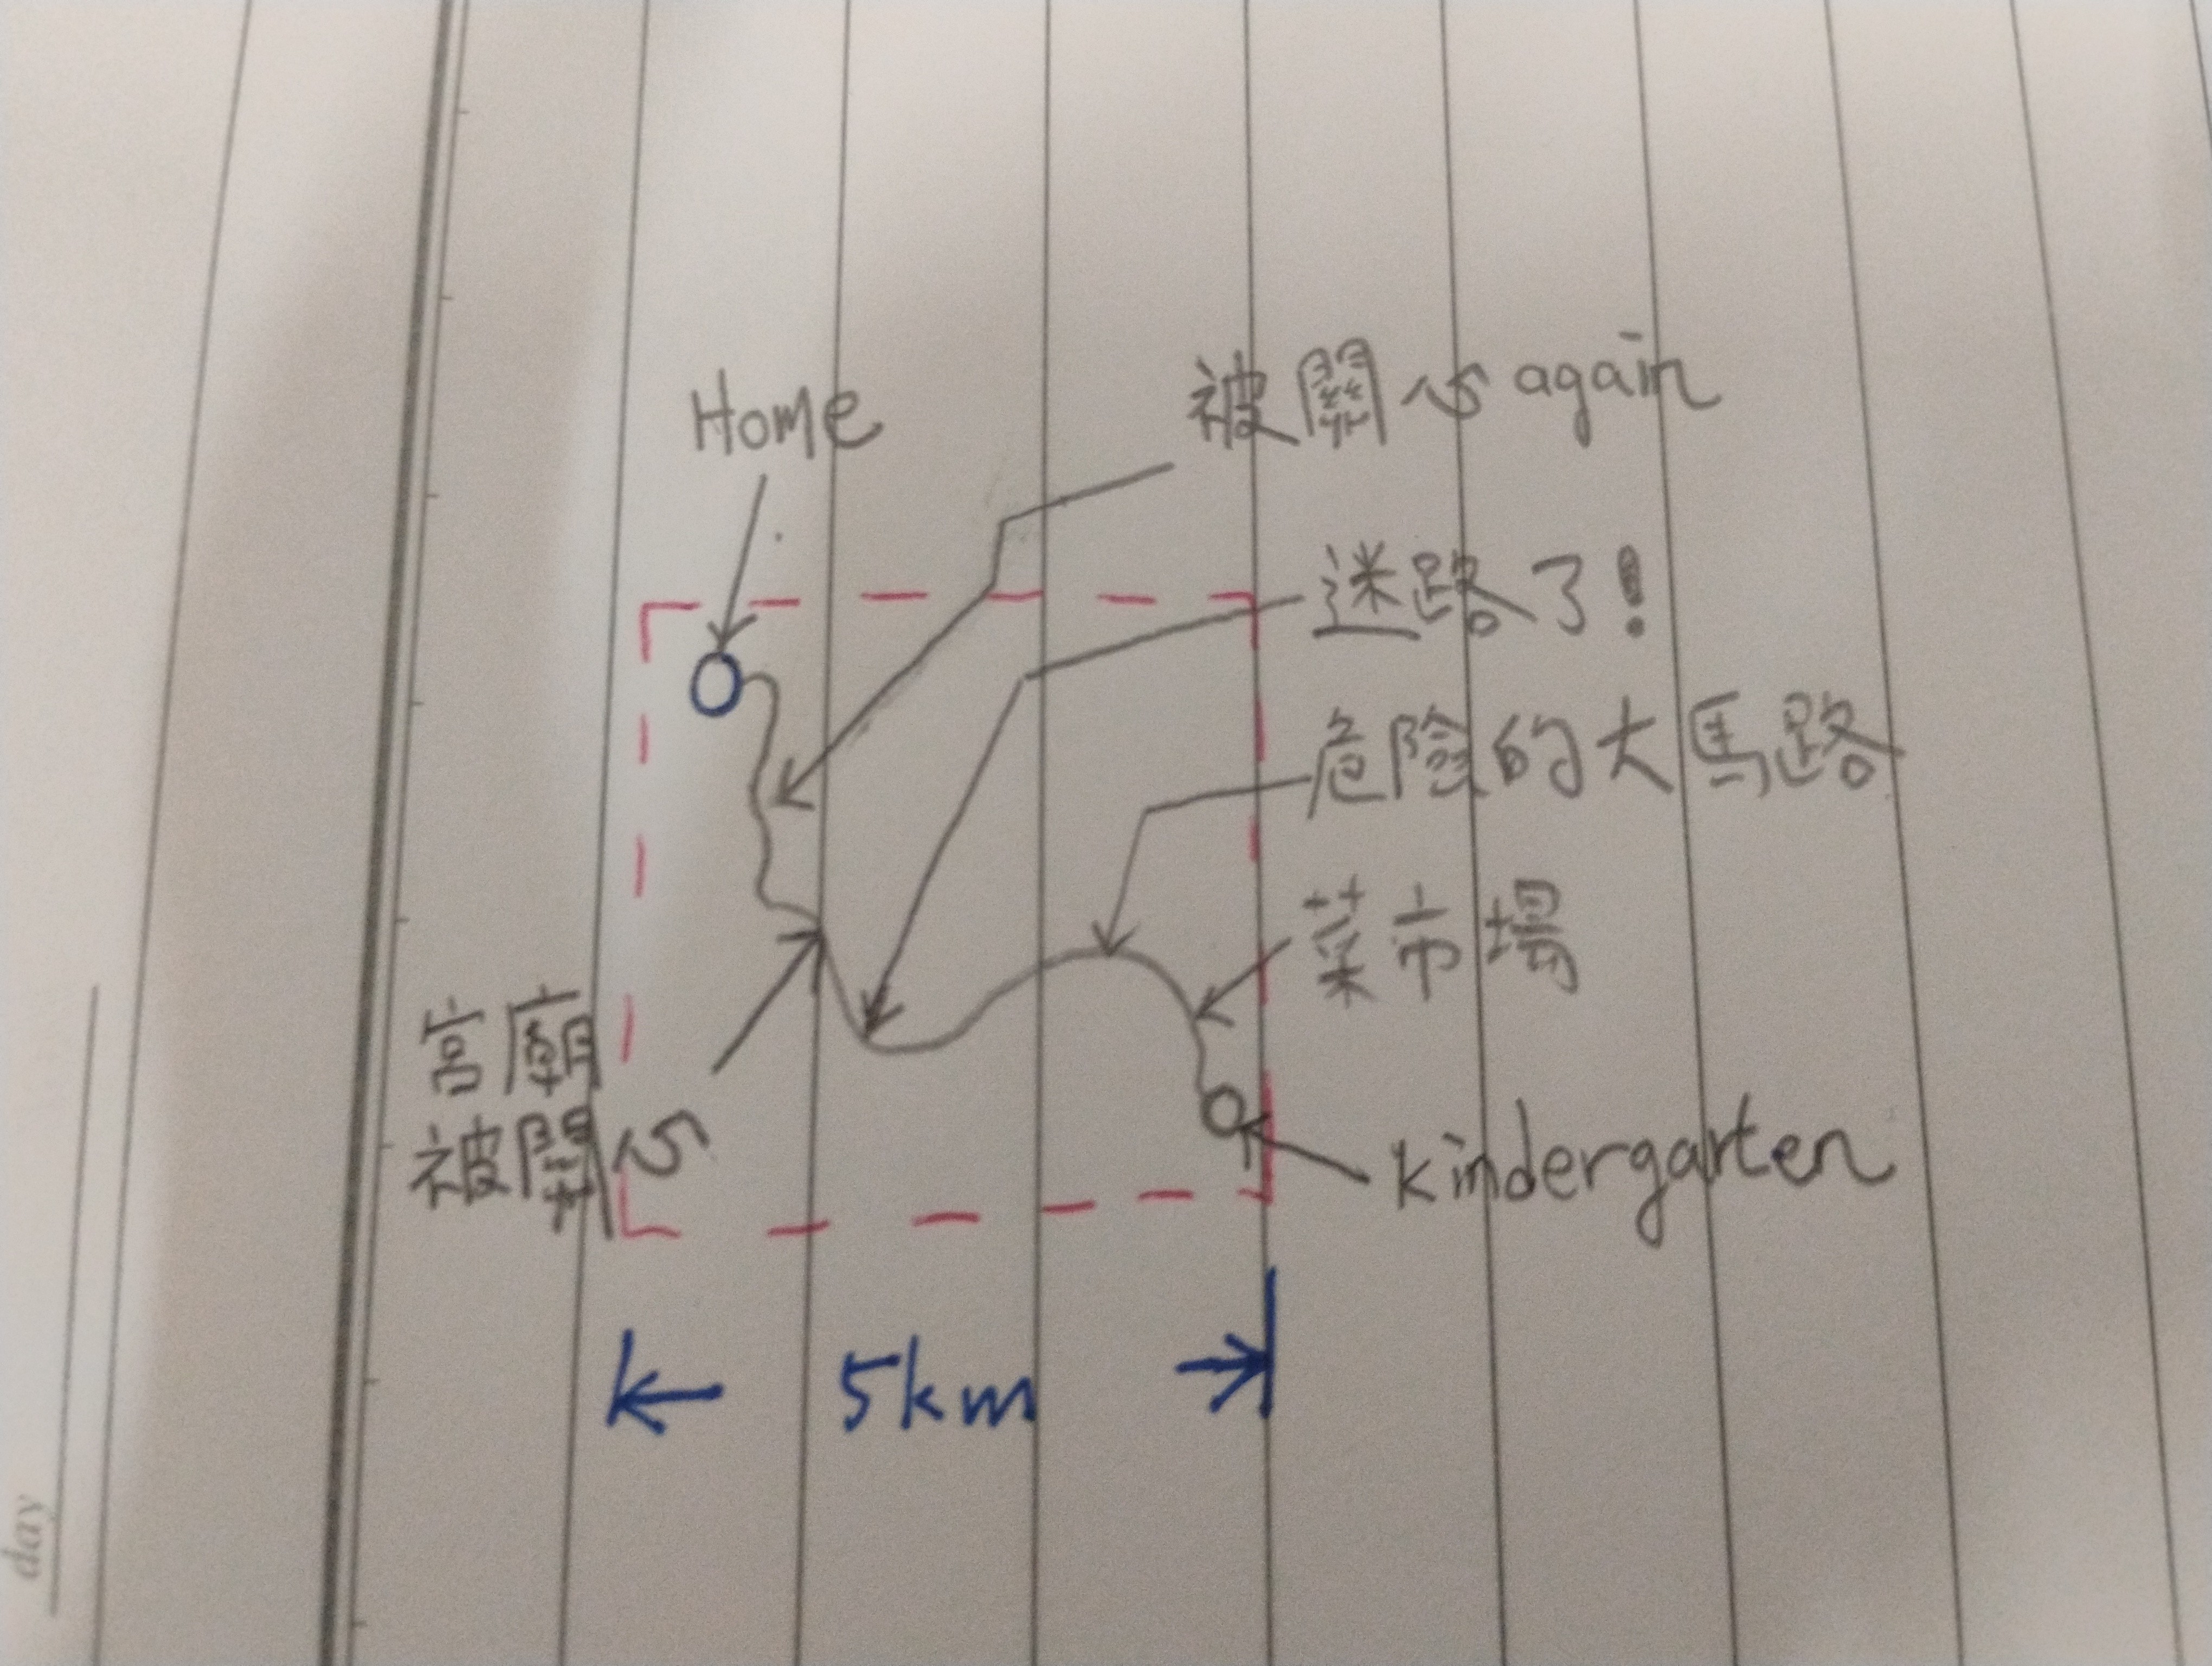 Home
被關心again
迷路了!
危險的大馬路
菜市場
宮廟
被關心
kindergarten
5km
day